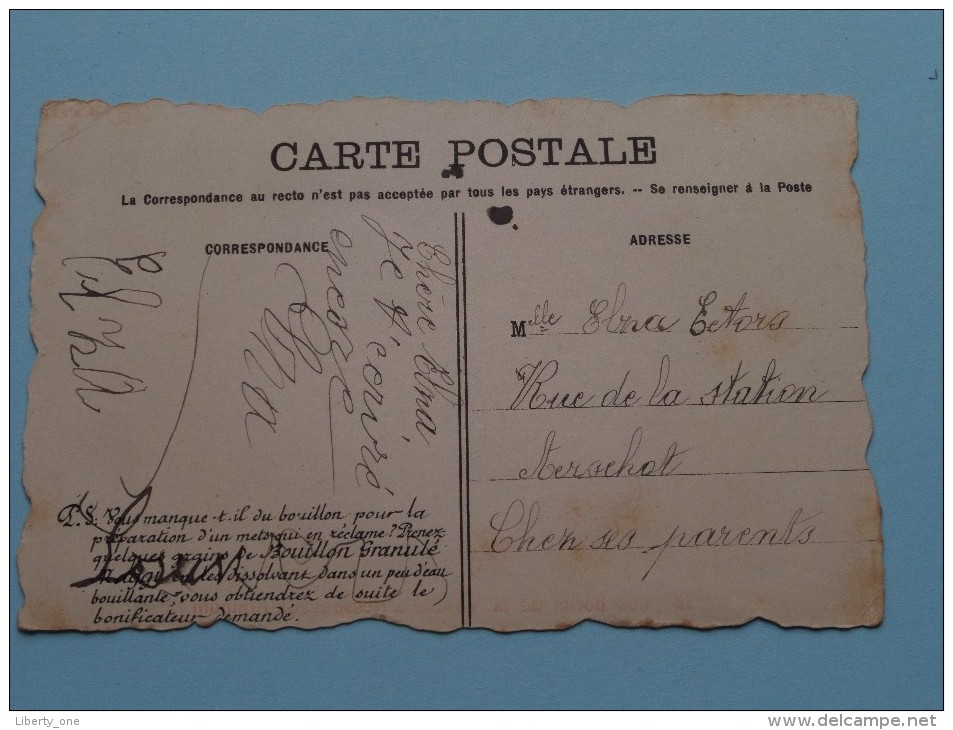 CARTE POSTALE
La Correspondance au recto n'est pas acceptée par tous les pays étrangers. -- Se renseigner à la Poste
CORRESPONDANCE
Chère Elma
je t'
encore
P.S. Vous manque-t-il du bouillon pour la
préparation d'un mets qui en réclame? Prenez
quelques grains de Bouillon Granulé
Maggi en les dissolvant dans un peu d'eau
bouillante, vous obtiendrez de suite le
bonificateur demandé.
ADRESSE
Melle Elma Ectors
Rue de la station
Aerschot
Chen ses parents
Liberty_one
http://www.delcampe.net